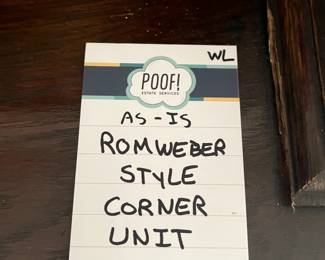 WL
POOF!
ESTATE SERVICES
AS-IS
ROMWEBER
STYLE
CORNER
UNIT